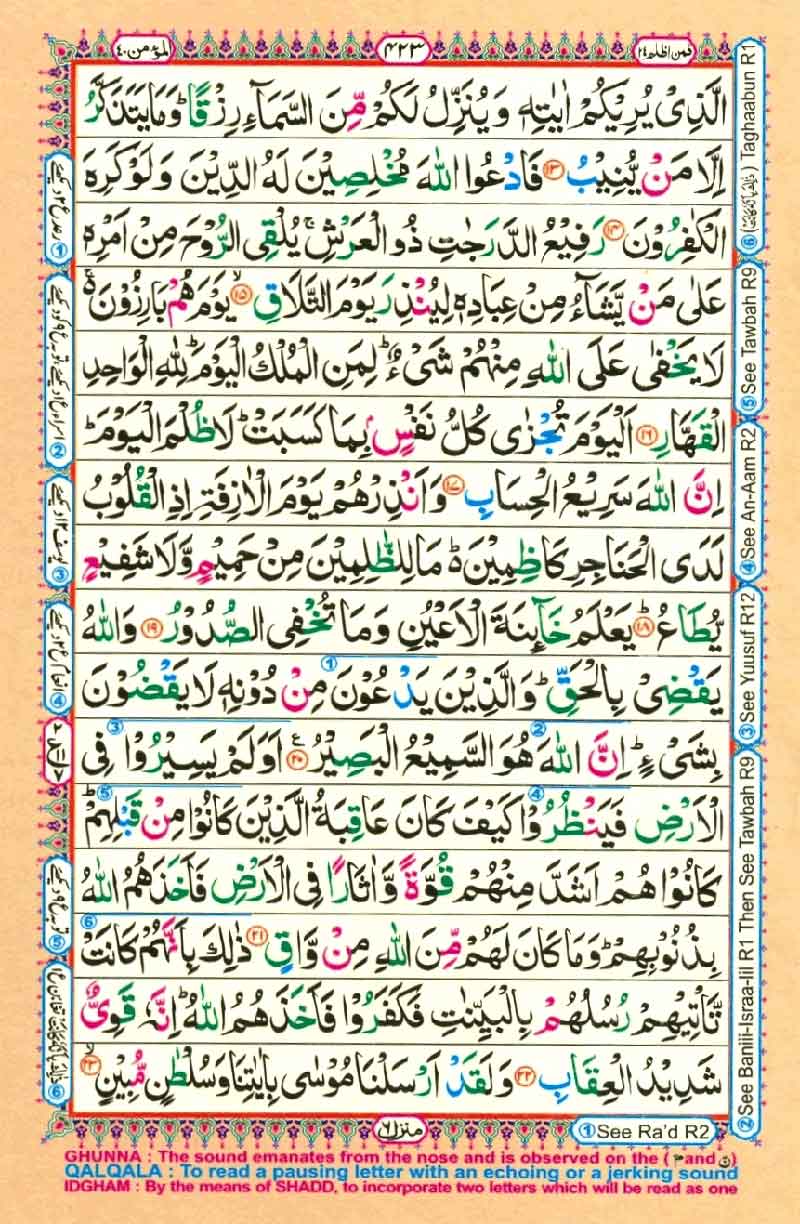 فمن اظلم ٢٤
٤٢٣
المؤمن ٤٠
الَّذِىْ يُرِيْكُمْ اٰيٰتِهٖ وَيُنَزِّلُ لَكُمْ مِّنَ السَّمَآءِ رِزْقًا ؕ وَمَا يَتَذَكَّرُ
اِلَّا مَنْ يُّنِيْبُ ۝١٣ فَادْعُوا اللّٰهَ مُخْلِصِيْنَ لَهُ الدِّيْنَ وَلَوْ كَرِهَ
الْكٰفِرُوْنَ ۝١٤ رَفِيْعُ الدَّرَجٰتِ ذُو الْعَرْشِ ۚ يُلْقِى الرُّوْحَ مِنْ اَمْرِهٖ
عَلٰى مَنْ يَّشَآءُ مِنْ عِبَادِهٖ لِيُنْذِرَ يَوْمَ التَّلَاقِ ۝١٥ ۙ يَوْمَ هُمْ بَارِزُوْنَ ۚ
لَا يَخْفٰى عَلَى اللّٰهِ مِنْهُمْ شَىْءٌ ؕ لِمَنِ الْمُلْكُ الْيَوْمَ ؕ لِلّٰهِ الْوَاحِدِ
الْقَهَّارِ ۝١٦ اَلْيَوْمَ تُجْزٰى كُلُّ نَفْسٍۭ بِمَا كَسَبَتْ ؕ لَا ظُلْمَ الْيَوْمَ ؕ
اِنَّ اللّٰهَ سَرِيْعُ الْحِسَابِ ۝١٧ وَاَنْذِرْهُمْ يَوْمَ الْاٰزِفَةِ اِذِ الْقُلُوْبُ
لَدَى الْحَنَاجِرِ كَاظِمِيْنَ ؕ مَا لِلظّٰلِمِيْنَ مِنْ حَمِيْمٍ وَّلَا شَفِيْعٍ
يُّطَاعُ ۝١٨ ؕ يَعْلَمُ خَآئِنَةَ الْاَعْيُنِ وَمَا تُخْفِى الصُّدُوْرُ ۝١٩ وَاللّٰهُ
يَقْضِىْ بِالْحَقِّ ؕ وَالَّذِيْنَ يَدْعُوْنَ مِنْ دُوْنِهٖ لَا يَقْضُوْنَ
بِشَىْءٍ ؕ اِنَّ اللّٰهَ هُوَ السَّمِيْعُ الْبَصِيْرُ ۝٢٠ اَوَلَمْ يَسِيْرُوْا فِى
الْاَرْضِ فَيَنْظُرُوْا كَيْفَ كَانَ عَاقِبَةُ الَّذِيْنَ كَانُوْا مِنْ قَبْلِهِمْ ؕ
كَانُوْا هُمْ اَشَدَّ مِنْهُمْ قُوَّةً وَّاٰثَارًا فِى الْاَرْضِ فَاَخَذَهُمُ اللّٰهُ
بِذُنُوْبِهِمْ ؕ وَمَا كَانَ لَهُمْ مِّنَ اللّٰهِ مِنْ وَّاقٍ ۝٢١ ذٰلِكَ بِاَنَّهُمْ كَانَتْ
تَّاْتِيْهِمْ رُسُلُهُمْ بِالْبَيِّنٰتِ فَكَفَرُوْا فَاَخَذَهُمُ اللّٰهُ ؕ اِنَّهٗ قَوِىٌّ
شَدِيْدُ الْعِقَابِ ۝٢٢ وَلَقَدْ اَرْسَلْنَا مُوْسٰى بِاٰيٰتِنَا وَسُلْطٰنٍ مُّبِيْنٍ ۝٢٣ ۙ
منزل ٦
① See Ra'd R2
② See Baniii-Israa-iil R1 Then See Tawbah R9
③ See Yuusuf R12
④ See An-Aam R2
⑤ See Tawbah R9
⑥ Taghaabun R1
GHUNNA : The sound emanates from the nose and is observed on the ( م and ن )
QALQALA : To read a pausing letter with an echoing or a jerking sound
IDGHAM : By the means of SHADD, to incorporate two letters which will be read as one